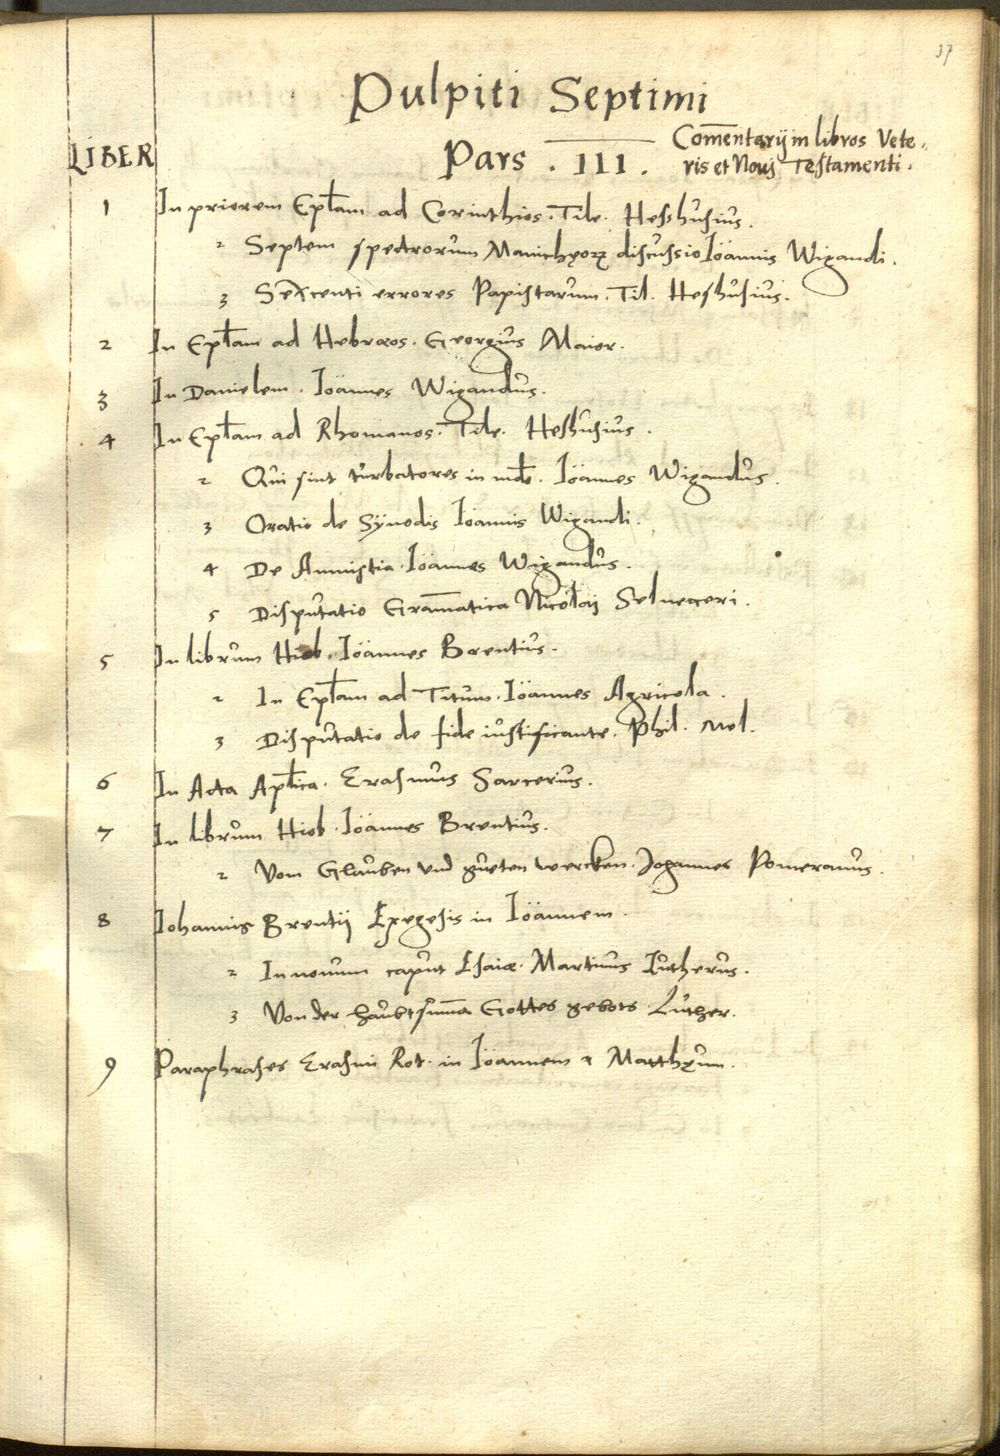 37
Pulpiti Septimi
LIBER Pars . III . Com̄entarÿ in libros Vete-
ris et Novj Testamenti.
1 In priorem Ep̄lam ad Corinthios. Tile. Heshusius.
2 Septem spectrorum Manichęorꝝ discussio Iöannis Wigandi.
3 Sexcenti errores Papistarum. Til. Heshusius.
2 In Ep̄lam ad Hebræos. Georgius Maior.
3 In Danielem. Iöannes Wigandus.
4 In Ep̄lam ad Rhomanos. Tile. Heshusius.
2 Qui sint turbatores in Iöannes Wigandus.
3 Oratio de Sÿnodis Iöannis Wigandi.
4 De Amnistia. Iöannes Wigandus.
5 Disputatio Gram̄atica Nicolaj Selnecceri.
5 In librum Hiob. Iöannes Brentius.
2 In Ep̄lam ad Titum. Iöannes Agricola.
3 Disputatio de fide iustificante. Phil. Mel.
6 In Acta Ap̄lica. Erasmus Sarcerius.
7 In librum Hiob. Iöannes Brentius.
2 Vom Glauben vnd gueten wercken. Johannes Pomeranus.
8 Iohannis Brentij Exegesis in Iöannem.
2 In nonum caput Esaiæ. Martinus Lutherus.
3 Von der haubtsum̄a Gottes gebots. Luther.
9 Paraphrases Erasmi Rot. in Iöannem & Matthęum.